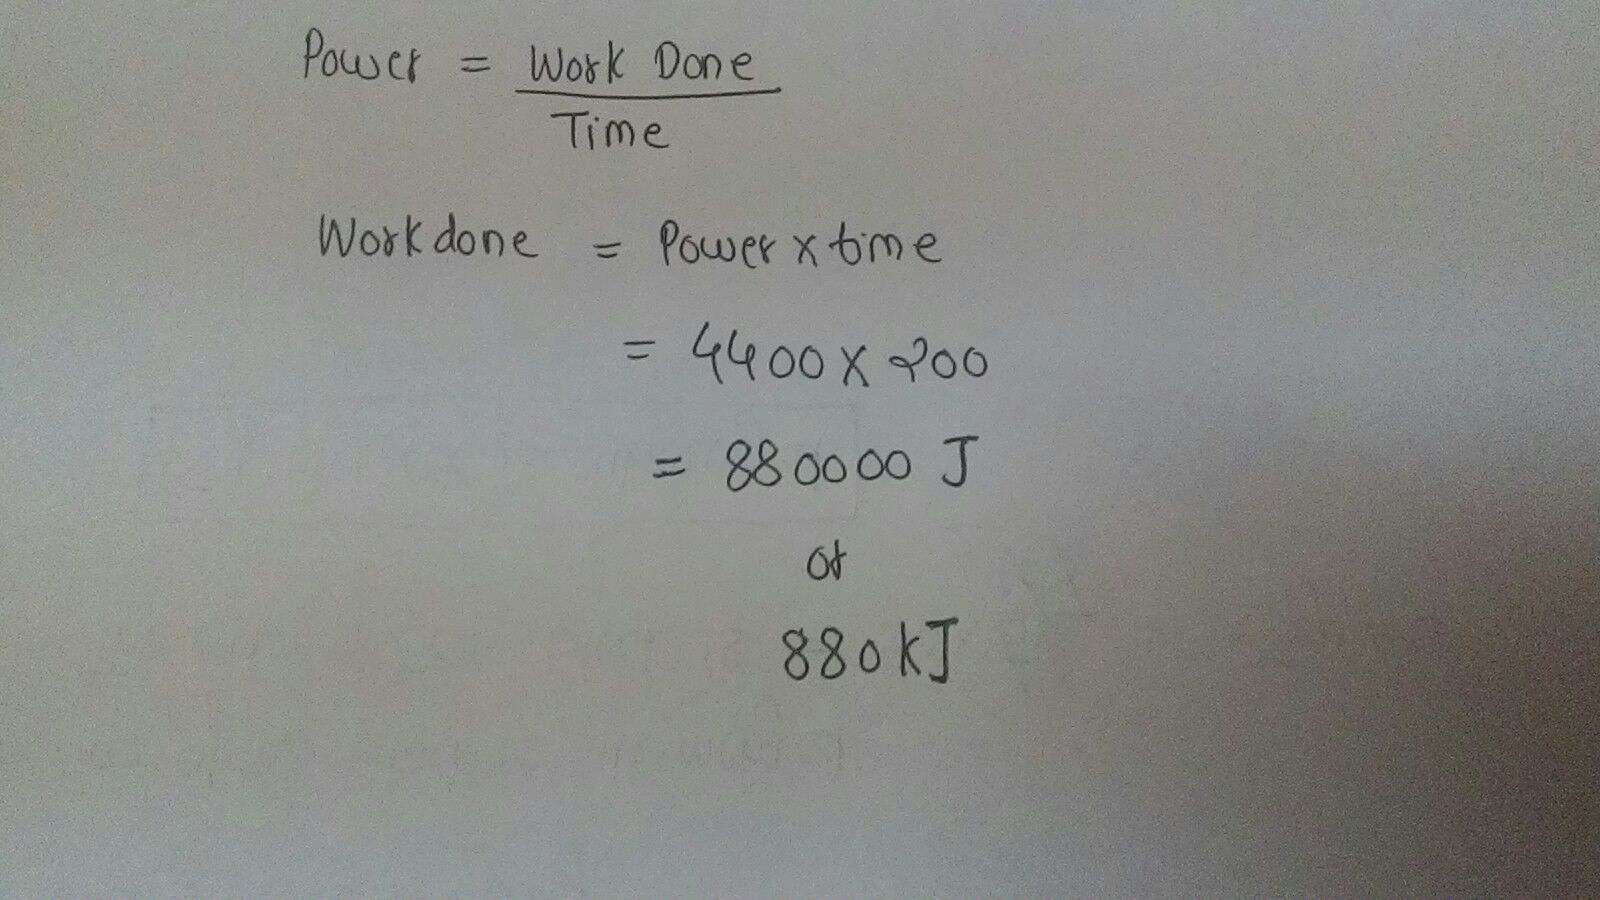 Power = Work Done
Time
Workdone = Power x time
= 4400 x 200
= 880000 J
or
880kJ